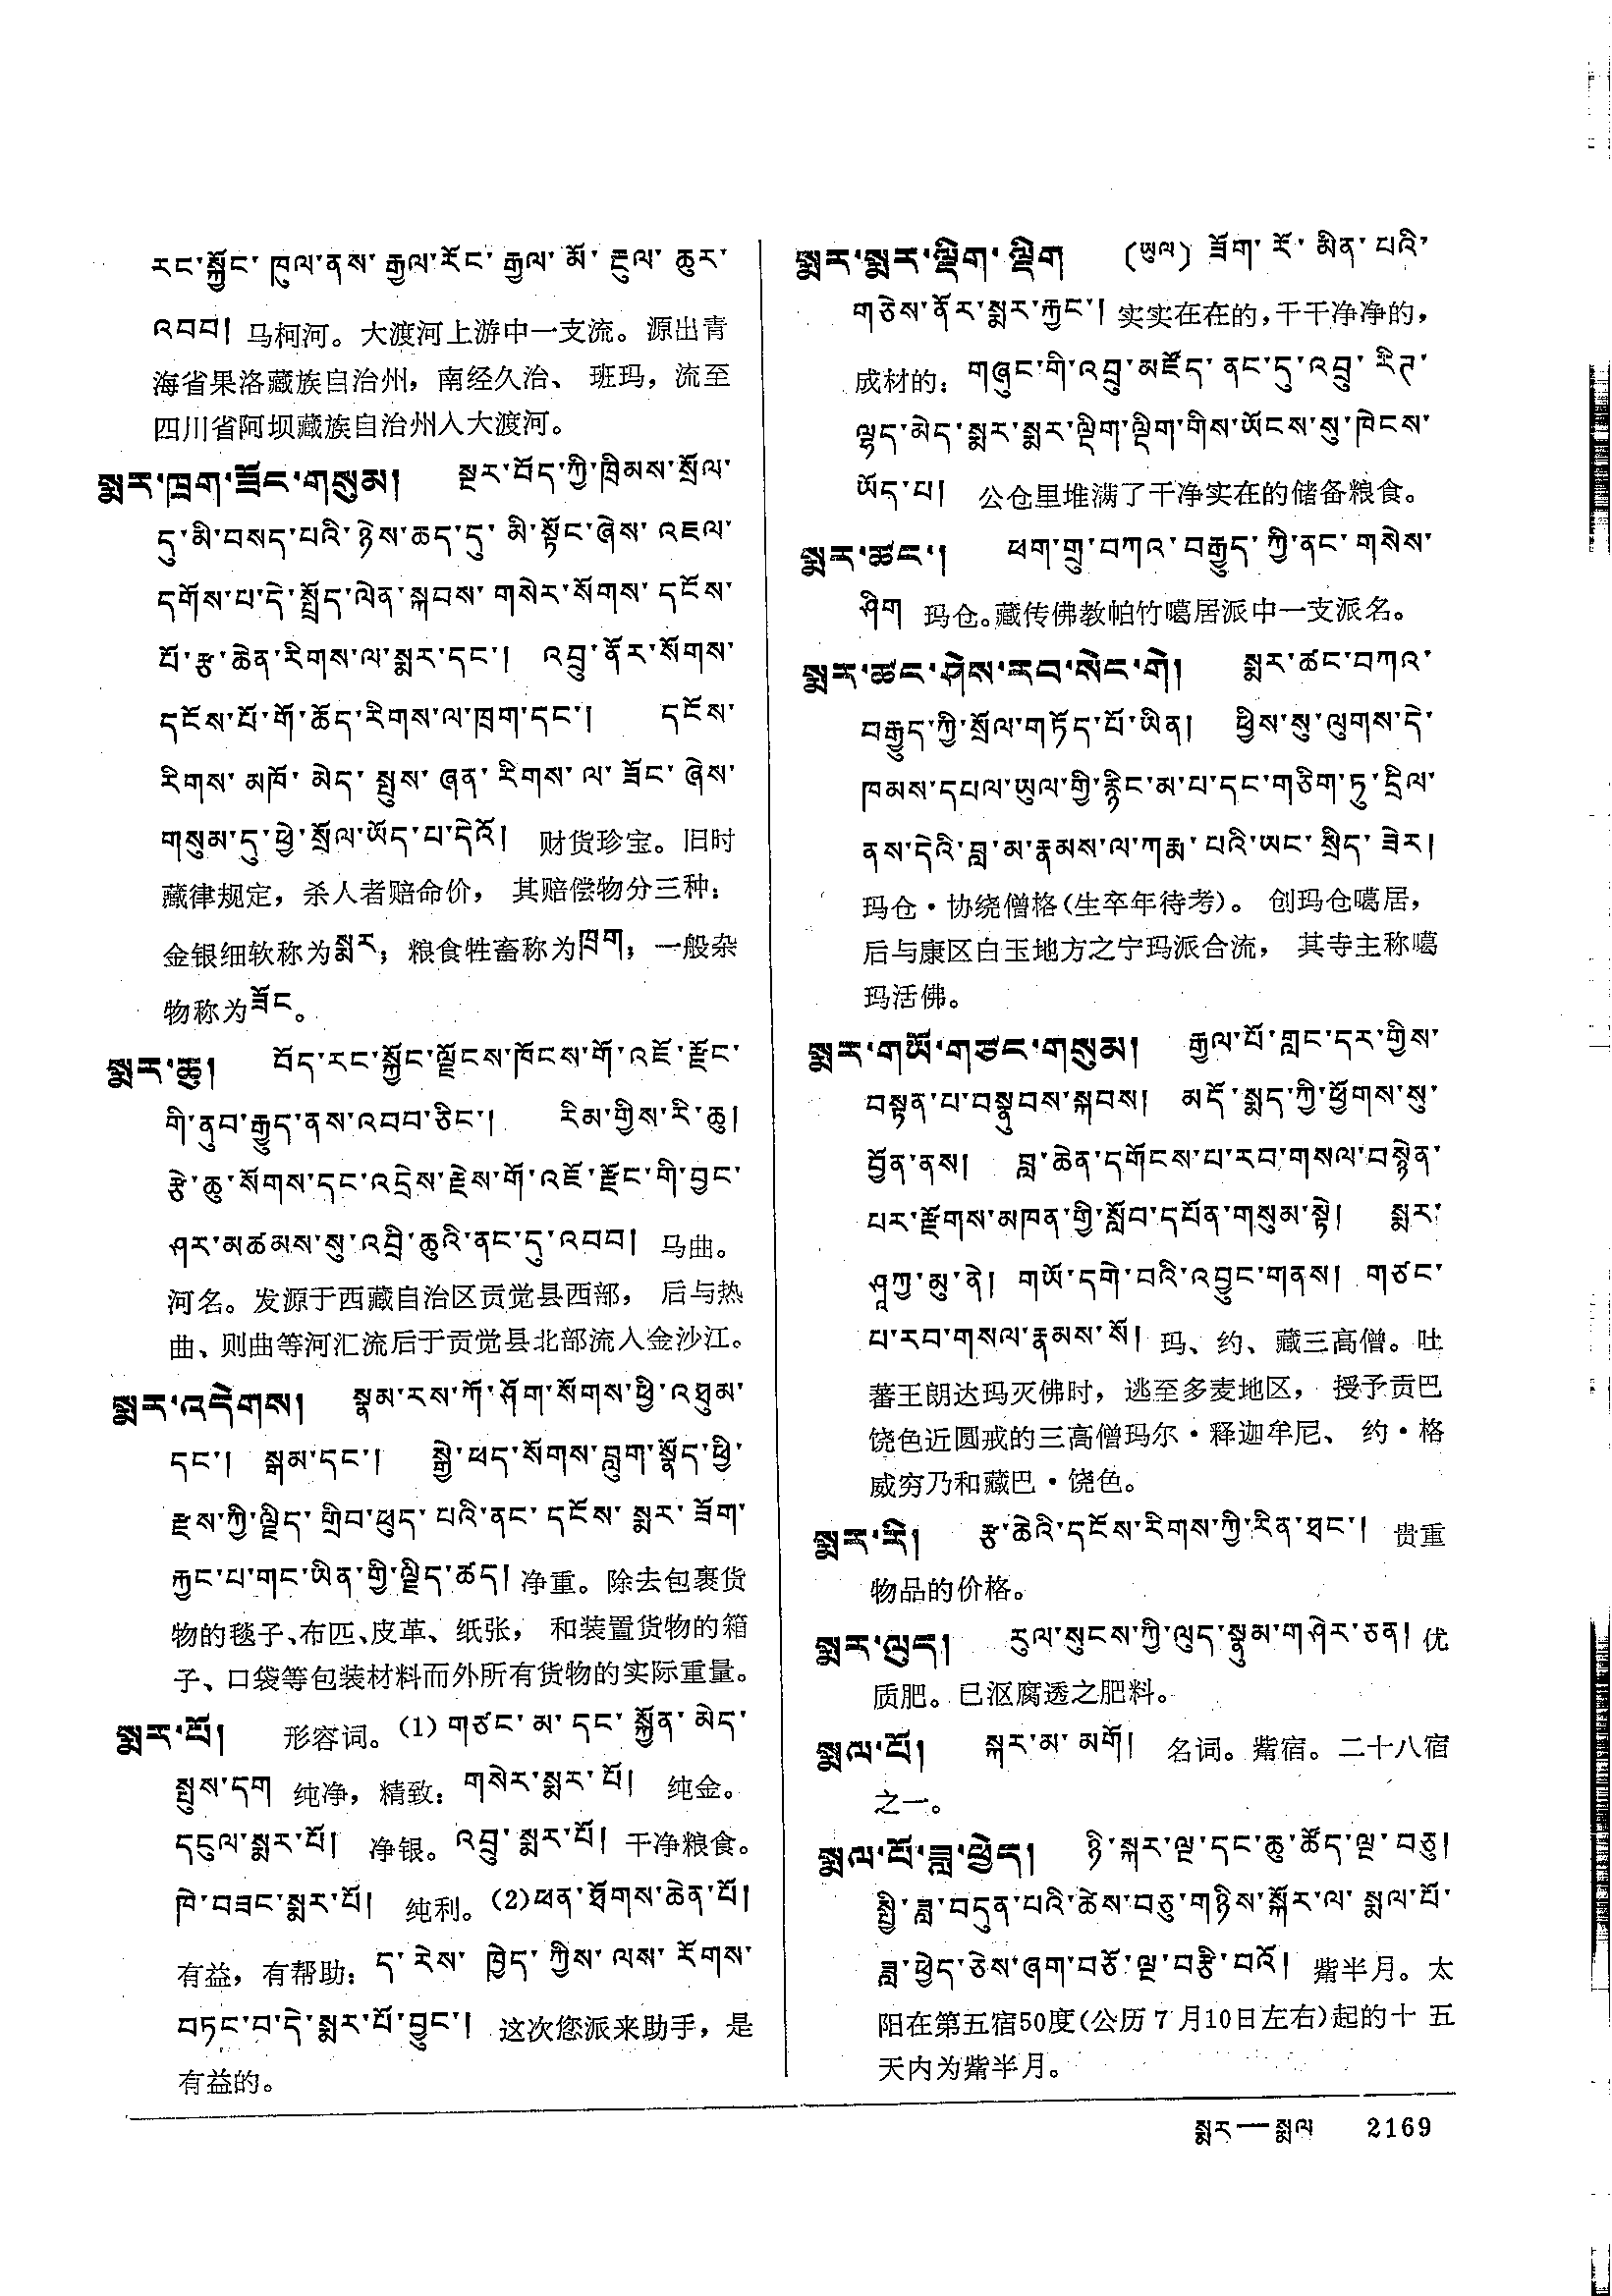 རང་སྐྱོང་ཁུལ་ནས་རྒྱལ་རོང་རྒྱལ་མོ་རྔུལ་ཆུར་
འབབ། 马柯河。大渡河上游中一支流。源出青
海省果洛藏族自治州，南经久治、班玛，流至
四川省阿坝藏族自治州入大渡河。
སྨར་ཁྲག་ཟོང་གསུམ། སྔར་བོད་ཀྱི་ཁྲིམས་སྲོལ་
དུ་མི་བསད་པའི་ཉེས་ཆད་དུ་མི་སྟོང་ཞེས་འཇལ་
དགོས་པ་དེ་སྤྲོད་ལེན་སྐབས་གསེར་སོགས་དངོས་
པོ་རྩ་ཆེན་རིགས་ལ་སྨར་དང་། འབྲུ་ནོར་སོགས་
དངོས་པོ་གོ་ཆོད་རིགས་ལ་ཁྲག་དང་། དངོས་
རིགས་མཁོ་མེད་སྤུས་ཞན་རིགས་ལ་ཟོང་ཞེས་
གསུམ་དུ་ཕྱེ་སྲོལ་ཡོད་པ་དེའོ། 财货珍宝。旧时
藏律规定，杀人者赔命价，其赔偿物分三种：
金银细软称为སྨར；粮食牲畜称为ཁྲག；一般杂
物称为ཟོང。
སྨར་ཆུ། བོད་རང་སྐྱོང་ལྗོངས་ཁོངས་གོ་འཇོ་རྫོང་
གི་ནུབ་རྒྱུད་ནས་འབབ་ཅིང་། རིམ་གྱིས་རི་ཆུ།
རྩེ་ཆུ་སོགས་དང་འདྲེས་རྗེས་གོ་འཇོ་རྫོང་གི་བྱང་
ཤར་མཚམས་སུ་འབྲི་ཆུའི་ནང་དུ་འབབ། 马曲。
河名。发源于西藏自治区贡觉县西部，后与热
曲、则曲等河汇流后于贡觉县北部流入金沙江。
སྨར་འདེགས། སྣམ་རས་ཀོ་ཤོག་སོགས་ཕྱི་འཐུམ་
དང་། སྒམ་དང་། སྒྱེ་ཕད་སོགས་བླུག་སྣོད་ཕྱི་
རྫས་ཀྱི་ལྗིད་གྲིབ་ཕུད་པའི་ནང་དངོས་སྨར་ཟོག་
རྐྱང་པ་གང་ཡིན་གྱི་ལྗིད་ཚད། 净重。除去包裹货
物的毯子、布匹、皮革、纸张，和装置货物的箱
子、口袋等包装材料而外所有货物的实际重量。
སྨར་པོ། 形容词。(1) གཙང་མ་དང་སྐྱོན་མེད་
སྤུས་དག 纯净，精致：གསེར་སྨར་པོ། 纯金。
དངུལ་སྨར་པོ། 净银。འབྲུ་སྨར་པོ། 干净粮食。
ཁེ་བཟང་སྨར་པོ། 纯利。(2)ཕན་ཐོགས་ཆེན་པོ།
有益，有帮助：ད་རེས་ཁྱེད་ཀྱིས་ལས་རོགས་
བཏང་བ་དེ་སྨར་པོ་བྱུང་། 这次您派来助手，是
有益的。
སྨར་སྨར་ལྡིག་ལྡིག (ཡུལ) ཟོག་རོ་མིན་པའི་
གཅེས་ནོར་སྨར་རྐྱང་། 实实在在的，干干净净的，
成材的：གཞུང་གི་འབྲུ་མཛོད་ནང་དུ་འབྲུ་རིཊ་
ལྷད་མེད་སྨར་སྨར་ལྡིག་ལྡིག་གིས་ཡོངས་སུ་ཁེངས་
ཡོད་པ། 公仓里堆满了干净实在的储备粮食。
སྨར་ཚང་། ཕག་གྲུ་བཀའ་བརྒྱུད་ཀྱི་ནང་གསེས་
ཤིག 玛仓。藏传佛教帕竹噶居派中一支派名。
སྨར་ཚང་ཤེས་རབ་སེང་གེ། སྨར་ཚང་བཀའ་
བརྒྱུད་ཀྱི་སྲོལ་གཏོད་པོ་ཡིན། ཕྱིས་སུ་ལུགས་དེ་
ཁམས་དཔལ་ཡུལ་གྱི་རྙིང་མ་པ་དང་གཅིག་ཏུ་དྲིལ་
ནས་དེའི་བླ་མ་རྣམས་ལ་ཀརྨ་པའི་ཡང་སྲིད་ཟེར།
玛仓·协绕僧格(生卒年待考)。创玛仓噶居，
后与康区白玉地方之宁玛派合流，其寺主称噶
玛活佛。
སྨར་གཡོ་གཙང་གསུམ། རྒྱལ་པོ་གླང་དར་གྱིས་
བསྟན་པ་བསྣུབས་སྐབས། མདོ་སྨད་ཀྱི་ཕྱོགས་སུ་
བྱོན་ནས། བླ་ཆེན་དགོངས་པ་རབ་གསལ་བསྙེན་
པར་རྫོགས་མཁན་གྱི་སློབ་དཔོན་གསུམ་སྟེ། སྨར་
ཤཱཀྱ་མུ་ནེ། གཡོ་དགེ་བའི་འབྱུང་གནས། གཙང་
པ་རབ་གསལ་རྣམས་སོ། 玛、约、藏三高僧。吐
蕃王朗达玛灭佛时，逃至多麦地区，授予贡巴
饶色近圆戒的三高僧玛尔·释迦牟尼、约·格
威穷乃和藏巴·饶色。
སྨར་རི། རྩ་ཆེའི་དངོས་རིགས་ཀྱི་རིན་ཐང་། 贵重
物品的价格。
སྨར་ལུད། རུལ་སུངས་ཀྱི་ལུད་སྣུམ་གཤེར་ཅན། 优
质肥。已沤腐透之肥料。
སྨལ་པོ། སྐར་མ་མགོ། 名词。觜宿。二十八宿
之一。
སྨལ་པོ་ཟླ་ཕྱེད། ཉི་སྐར་ལྔ་དང་ཆུ་ཚོད་ལྔ་བཅུ།
སྤྱི་ཟླ་བདུན་པའི་ཚེས་བཅུ་གཉིས་སྐོར་ལ་སྨལ་པོ་
ཟླ་ཕྱེད་ཅེས་ཞག་བཅོ་ལྔ་བརྩི་བའོ། 觜半月。太
阳在第五宿50度(公历7月10日左右)起的十五
天内为觜半月。
སྨར—སྨལ 2169